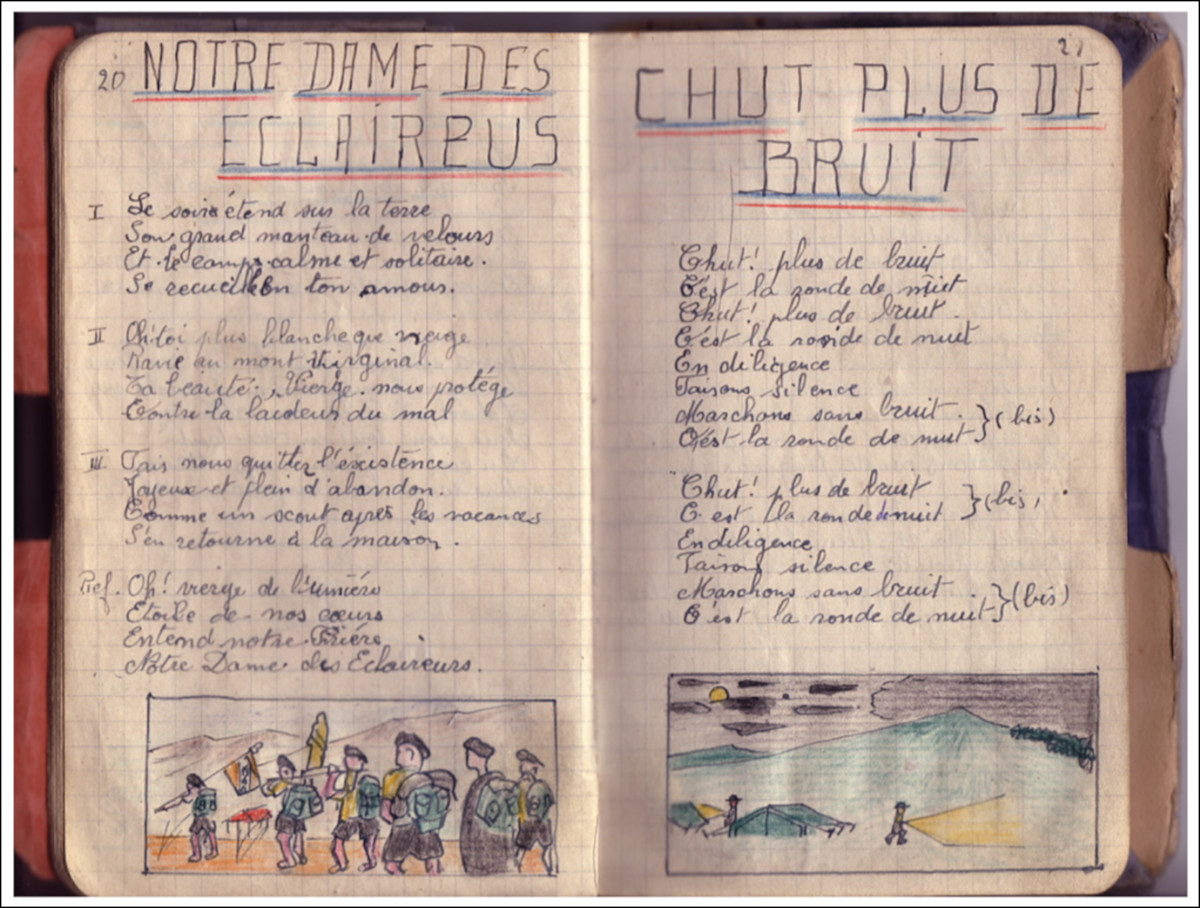 20 NOTRE DAME DES
ECLAIREUS
I Le soir étend sur la terre
Son grand manteau de velours
Et le camp calme et solitaire.
Se recueille en ton amour.
II Oh toi plus blanche que neige
Ravie au mont virginal.
Ta beauté, Vierge nous protége
Contre la laideur du mal
III Fais nous quitter l'éxistence
Joyeux et plein d'abandon.
Comme un scout après les vacances
S'en retourne à la maison.
Ref. Oh! vierge de lumiére
Etoile de nos cœurs
Entend notre Priére
Notre Dame des Eclaireurs.
21
CHUT PLUS DE
BRUIT
Chut! plus de bruit
C'est la ronde de nuit
Chut! plus de bruit.
C'est la ronde de nuit
En diligence
Faisons silence
Marchons sans bruit.
C'est la ronde de nuit } (bis)
Chut! plus de bruit
C'est la ronde de nuit } (bis)
En diligence
Faisons silence
Marchons sans bruit.
C'est la ronde de nuit } (bis)